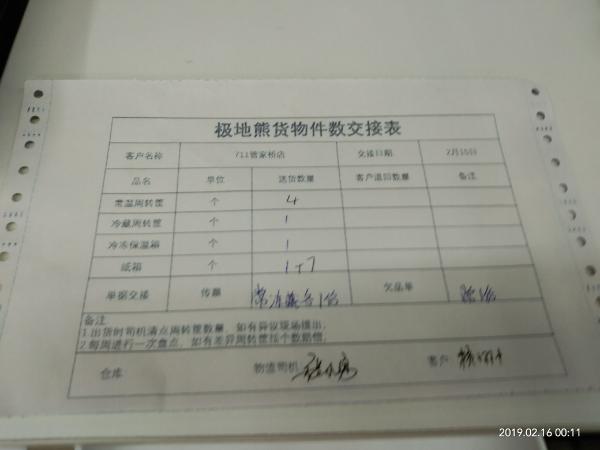 极地熊货物件数交接表
客户名称 711管家桥店 交接日期 2月15日
品名 单位 送货数量 客户退回数量 备注
常温周转筐 个 4
冷藏周转筐 个 1
冷冻保温箱 个 1
纸箱 个 1+7
单据交接 传票 欠品单
备注
1.出货时司机清点周转筐数量，如有异议现场提出；
2.每周进行一次盘点，如有差异周转筐按个数赔偿；
仓库 物流司机 客户
2019.02.16 00:11